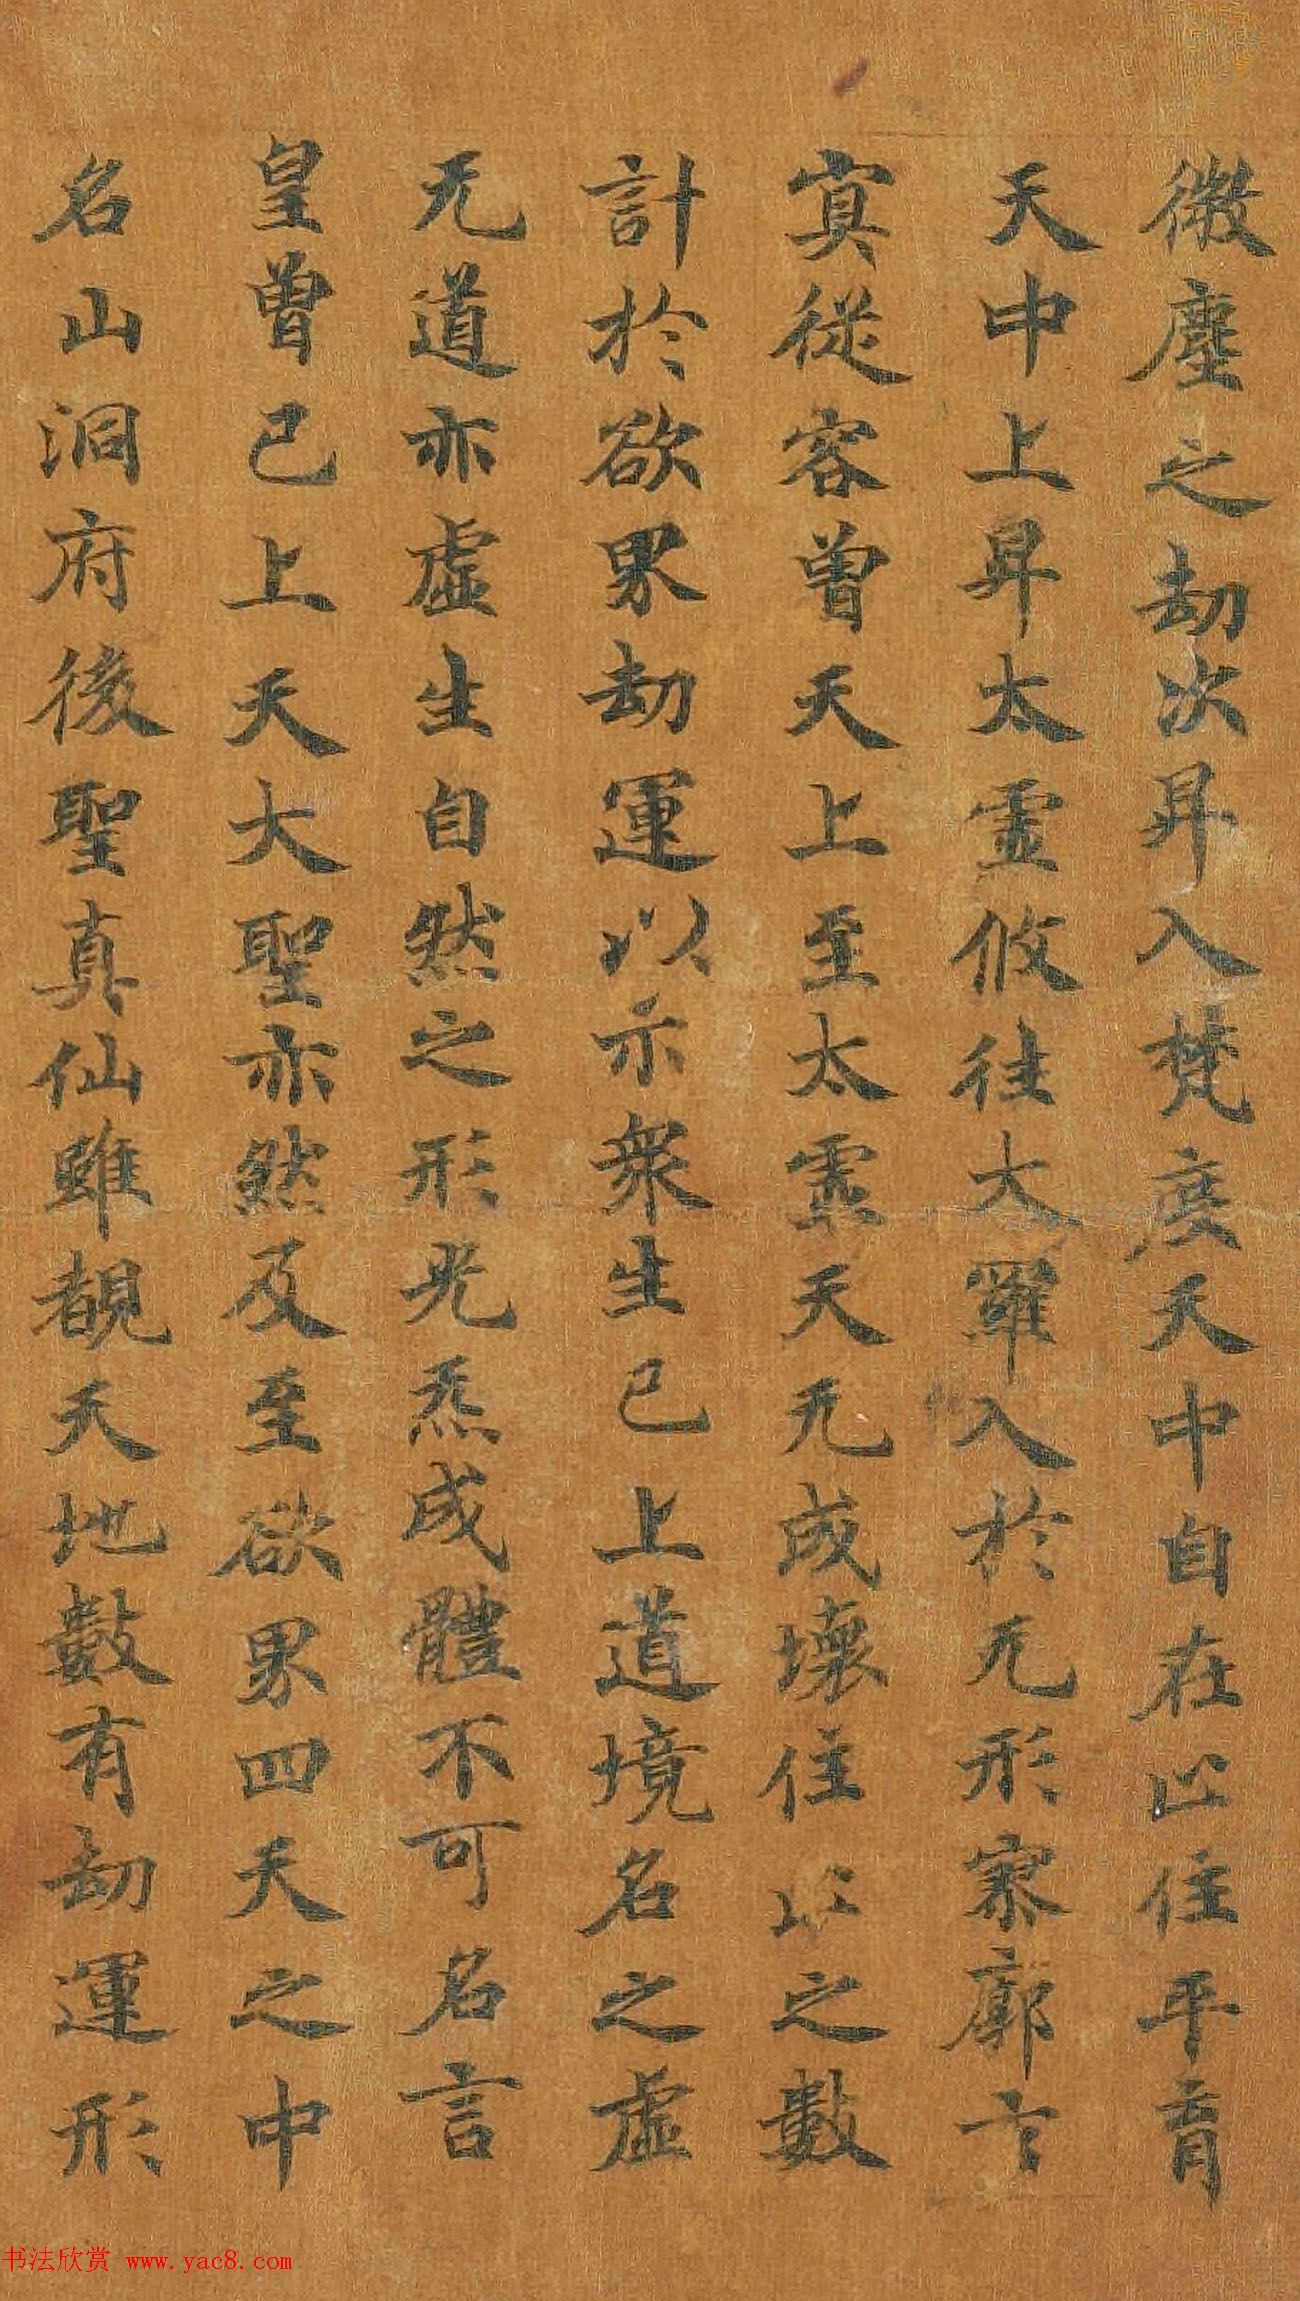 微塵之劫次昇入梵度天中自在以住平育
天中上昇太靈攸往大羅入於无形寥廓
寞從容曾天上至太靈天无成壞住以之數
計於欲界劫運以示衆生已上道境名之虛
无道亦虛生自然之形光炁成體不可名言
皇曾已上天大聖亦然及至欲界四天之中
名山洞府後聖真仙雖覩天地數有劫運形
书法欣赏 www.yac8.com